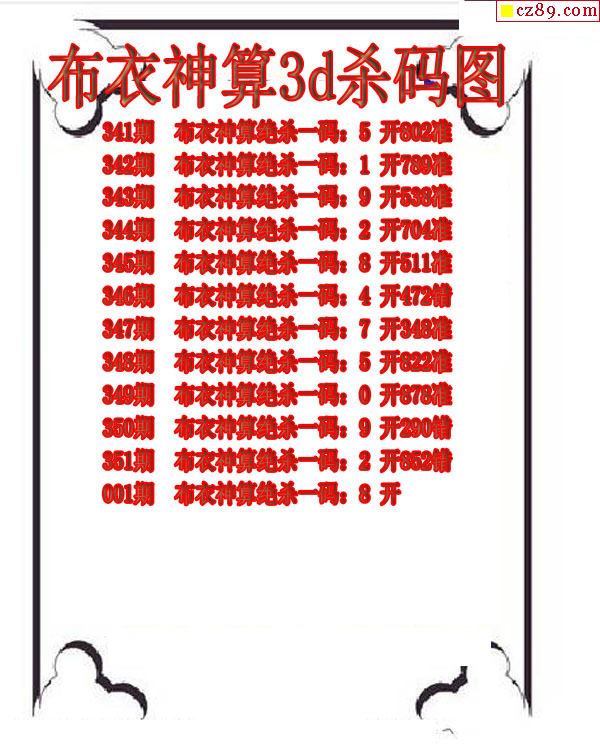 cz89.com
布衣神算3d杀码图
341期 布衣神算绝杀一码：5 开802准
342期 布衣神算绝杀一码：1 开789准
343期 布衣神算绝杀一码：9 开538准
344期 布衣神算绝杀一码：2 开704准
345期 布衣神算绝杀一码：8 开511准
346期 布衣神算绝杀一码：4 开472错
347期 布衣神算绝杀一码：7 开348准
348期 布衣神算绝杀一码：5 开822准
349期 布衣神算绝杀一码：0 开878准
350期 布衣神算绝杀一码：9 开290错
351期 布衣神算绝杀一码：2 开852错
001期 布衣神算绝杀一码：8 开